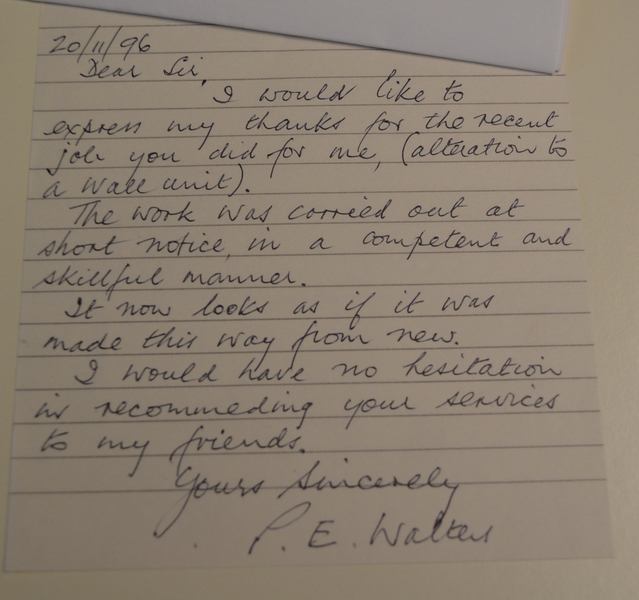 20/11/96
Dear Sir,
I would like to
express my thanks for the recent
job you did for me, (alteration to
a wall unit).
The work was carried out at
short notice, in a competent and
skillful manner.
It now looks as if it was
made this way from new.
I would have no hesitation
in recommeding your services
to my friends.
Yours Sincerely
P. E. Walters